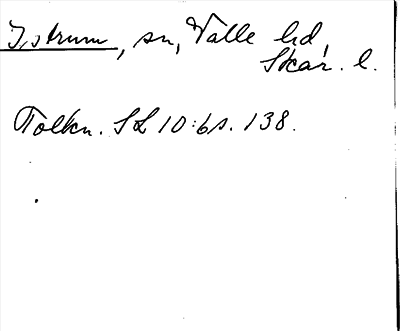 Istrum, sn, Valle hd,
Skar. l.
Tolkn. SL 10:6 s. 138.